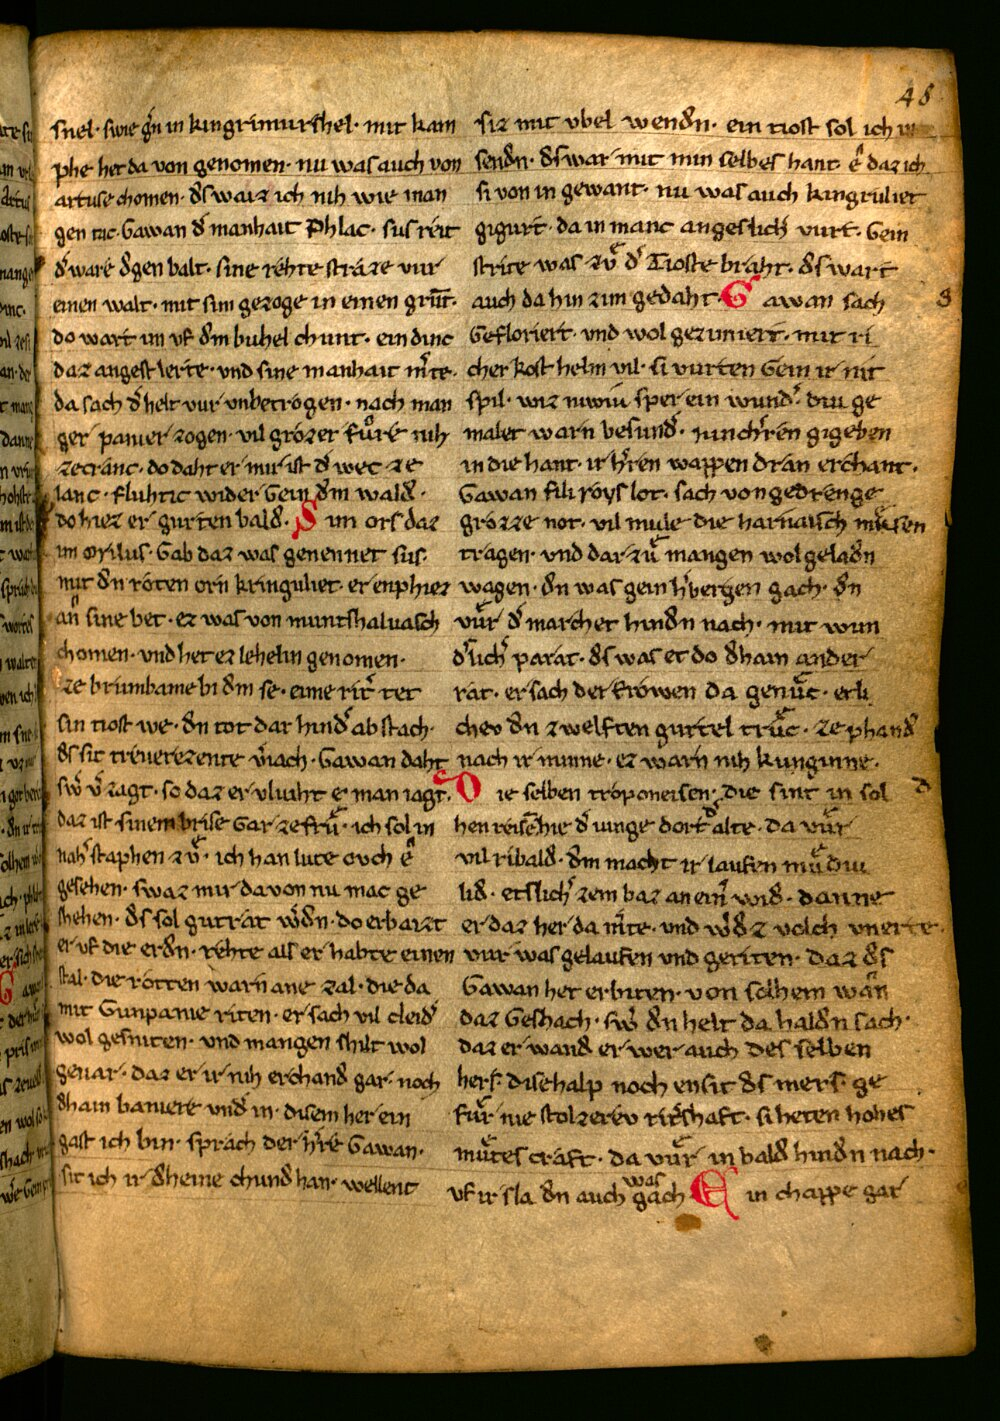 48
snel· swie gͤn in kingrimurshel· mit kam
phe het da von genomen· nu was auch von
artuse chomen· ds waiz ich nih wie man
gen tac· Gawan dˢ manhait phlac· sus reit
dˢ ware dgen balt· sine rehte straze vur
einen walt· mit sim gezoge in einen grūt·
do wart im vf dm buhel chunt· ein dinc
daz angest lerte· vnd sine manhait mˢte·
da sach dˢ helt vur vnbetrogen· nach man
ger panier zogen· vil grozer fuͦre nih
zecranc· do daht er mir ist dˢ wec ze
lanc· fluhtic wider Gein dm wald·
do hiez er gurten bald· S in ors daz
im orilus· Gab daz was genennet sus·
mit dn roten orn kringuliet· er enphiez
an sine bet· ez was von muntshaluasch
chomen· vnd het ez lehelin genomen·
ze brumbane bi dm se· eime ritˢ tet
sin tiost we· dn tot dar hindˢ ab stach·
ds sit treuerezente vˢiach· Gawan daht
swˢ vˢzagt· so daz er vliuht e man iagt·
daz ist sinem brise Gar zefruͦ· ich sol in
nahˢ staphen zuͦ· ich han lute ouch e
gesehen· swaz mir da von nu mac ge
shehen· ds sol gut rat wˢdn· do erbaizt
er vf die erdn· rehte als er habte einen
stal· die rotten warn ane zal· die da
mit Gunpanie riten· er sach vil cleidˢ
wol gesniten· vnd mangen shilt wol
geuar· daz er ir nih erchand gar· noch
dhain baniere vndˢ in· disem her ein
gast ich bin· sprach der hˢre Gawan·
sit ich ir dheine chund han· wellent
siz mit vbel wendn· ein tiost sol ich in
sendn· dswar mit min selbes hant· e daz ich
si von in gewant· nu was auch kingruliet
gigurt· da in manc angeslichˢ vurt· Gein
strite was zuͦ dˢ Tioste braht· ds wart
auch da hin zim gedaht· G awan sach
Gefloriert· vnd wol gezimiert· mit ri
cher kost helm vil· si vurten Gein ir nit
spil· wiz niwiu sper ein wundˢ· diu ge
malet warn besundˢ· iunchˢren gigeben
in die hant· ir hˢren wappen dran erchant·
Gawan fili roys lot· sach von gedrenge
grozze not· vil mule die harnasch muͦsen
tragen· vnd dar zuͦ mangen wol geladn
wagen· dn was gein hˢbergen gach· dn
vuͦr dˢ marchet hindn nach· mit wun
dˢlichˢ parat· ds was et do dhain ander
rat· er sach der frowen da genuͦc· etli
chev dn zwelften gurtel truͦc· ze phandˢ
nach ir minne· ez warn nih kuniginne·
D ie selben troponeisen· die sint in sol
hen reise· hie dˢ iunge dort dˢ alte· da vuͦr
vil ribald· dm macht ir laufen muͦdiu
lid· etslichˢ zem baz an einˢ wid· danne
er daz her da mˢte· vnd wˢdz volch vnerte·
vur was gelaufen vnd geriten· daz ds
Gawan het erbiten· von solhem wan
daz Geshach· swˢ dn helt da haldn sach·
daz er wand er wer auch des selben
hers· disehalp noch ensit ds mers· ge
fuͦr nie stolzerev ritˢshaft· si heten hohes
muͦtes craft· da vuͦr in bald hindn nach·
vf ir sla dn auch was gach· E in chappe gar